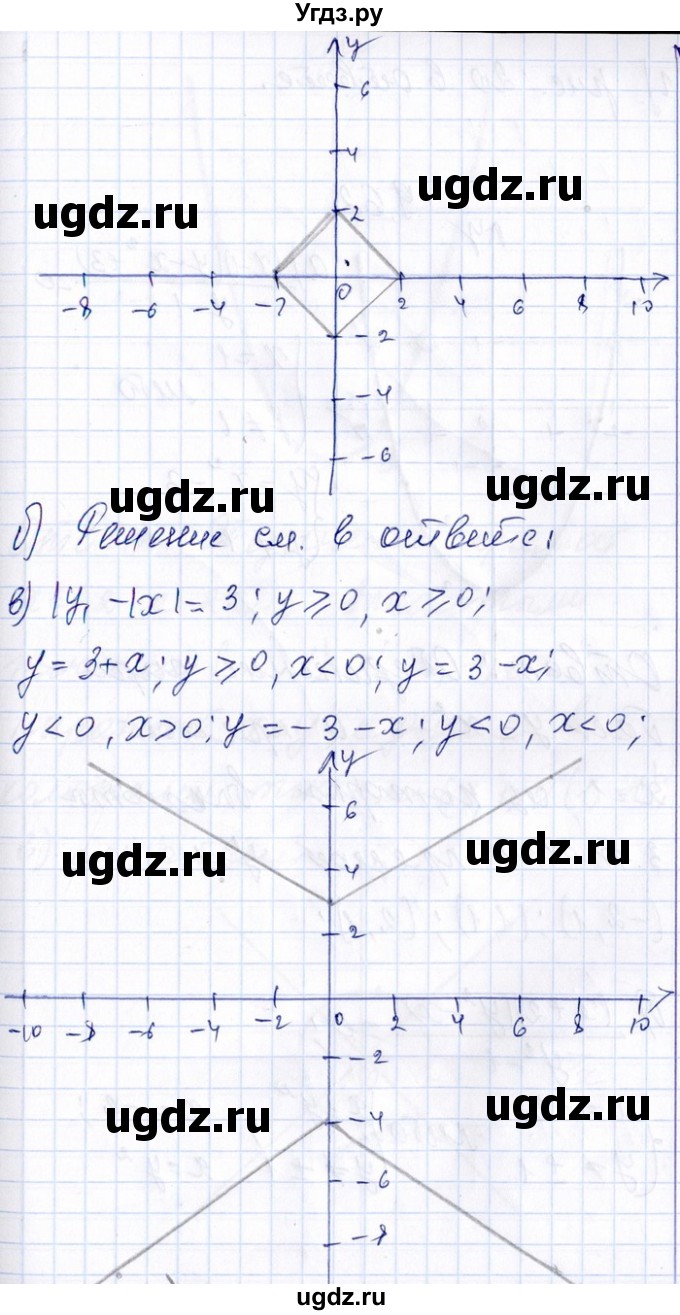 Угдз.ру
y
6
4
ugdz.ru
ugdz.ru
2
-8 -6 -4 -2 0 2 4 6 8 10
-2
-4
-6
ugdz.ru
ugdz.ru
б) Решение см. в ответе;
в) |y| -|x| = 3; y ⩾ 0, x ⩾ 0;
y = 3+x; y ⩾ 0, x < 0; y = 3 -x;
y < 0, x > 0; y = -3 -x; y < 0, x < 0;
y
6
ugdz.ru
ugdz.ru
4
2
-10 -8 -6 -4 -2 0 2 4 6 8 10
-2
ugdz.ru
ugdz.ru
-4
-6
-8
ugdz.ru